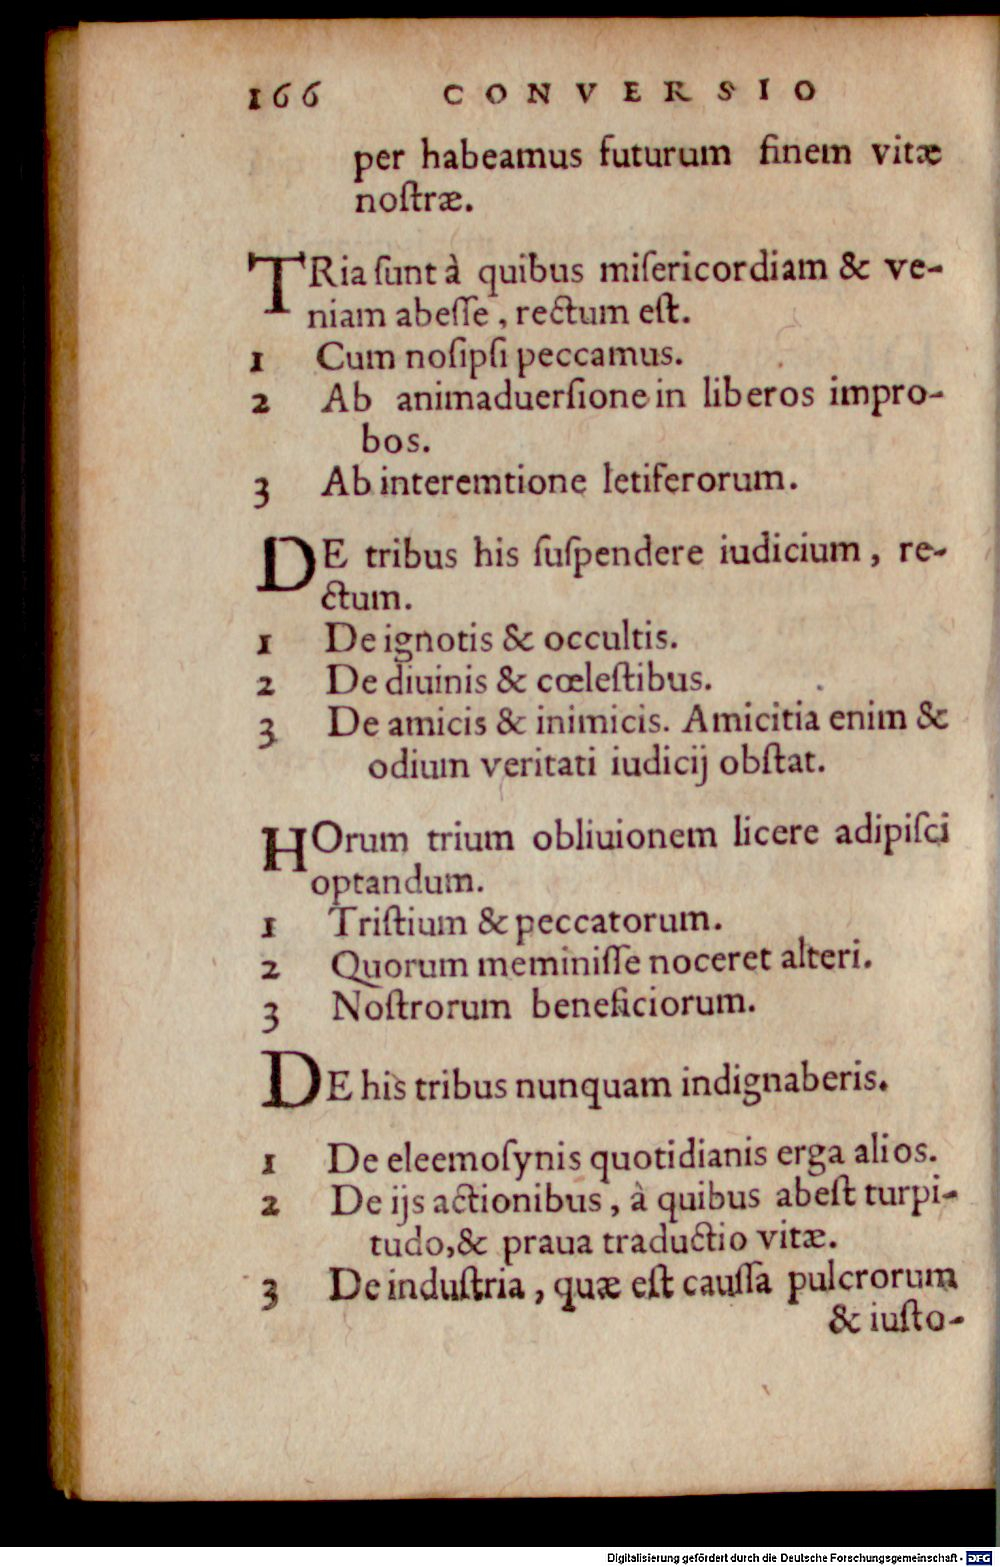 166 CONVERSIO
per habeamus futurum finem vitæ
noſtræ.
TRia ſunt à quibus miſericordiam & ve-
niam abeſſe, rectum eſt.
1 Cum noſipſi peccamus.
2 Ab animaduerſione in liberos impro-
bos.
3 Ab interemtione letiferorum.
DE tribus his ſuſpendere iudicium, re-
ctum.
1 De ignotis & occultis.
2 De diuinis & cœleſtibus.
3 De amicis & inimicis. Amicitia enim &
odium veritati iudicij obſtat.
HOrum trium obliuionem licere adipiſci
optandum.
1 Triſtium & peccatorum.
2 Quorum meminiſſe noceret alteri.
3 Noſtrorum beneficiorum.
DE his tribus nunquam indignaberis.
1 De eleemoſynis quotidianis erga alios.
2 De ijs actionibus, à quibus abeſt turpi-
tudo, & praua traductio vitæ.
3 De induſtria, quæ eſt cauſſa pulcrorum
& iuſto-
Digitalisierung gefördert durch die Deutsche Forschungsgemeinschaft - DFG